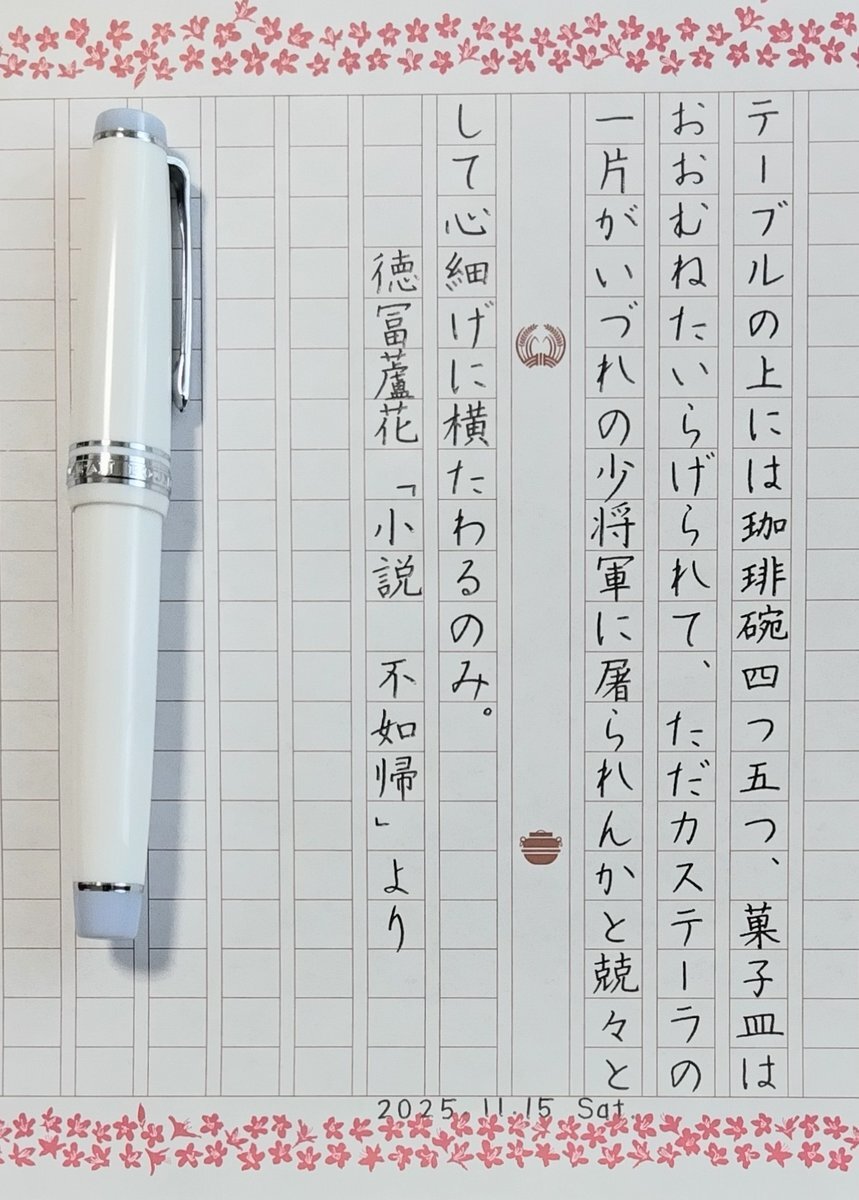 テーブルの上には珈琲碗四つ五つ、菓子皿は
おおむねたいらげられて、ただカステーラの
一片がいづれの少将軍に屠られんかと兢々と
して心細げに横たわるのみ。
徳冨蘆花「小説　不如帰」より
2025.11.15 Sat.